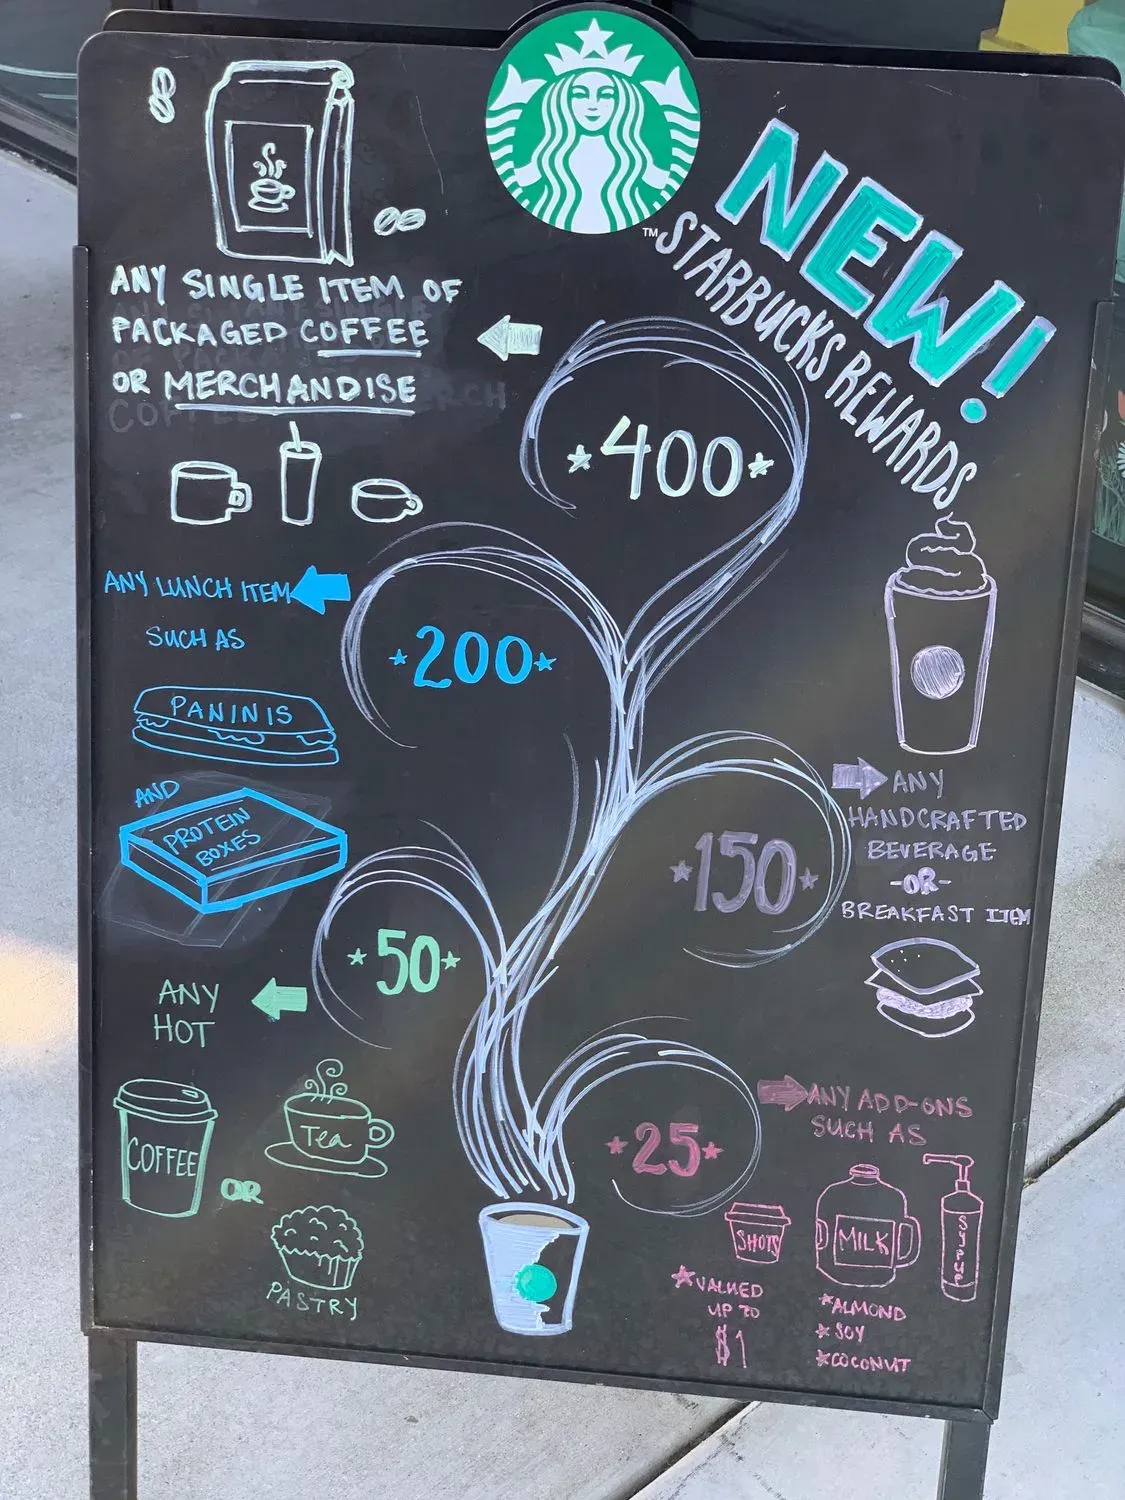 TM
NEW!
STARBUCKS REWARDS
ANY SINGLE ITEM OF
PACKAGED COFFEE
OR MERCHANDISE
400
ANY LUNCH ITEM
SUCH AS
PANINIS
AND
PROTEIN
BOXES
200
ANY
HANDCRAFTED
BEVERAGE
-OR-
BREAKFAST ITEM
150
50
ANY
HOT
COFFEE
Tea
OR
PASTRY
25
ANY ADD-ONS
SUCH AS
SHOTS
MILK
SYRUP
VALUED
UP TO
$1
ALMOND
SOY
COCONUT